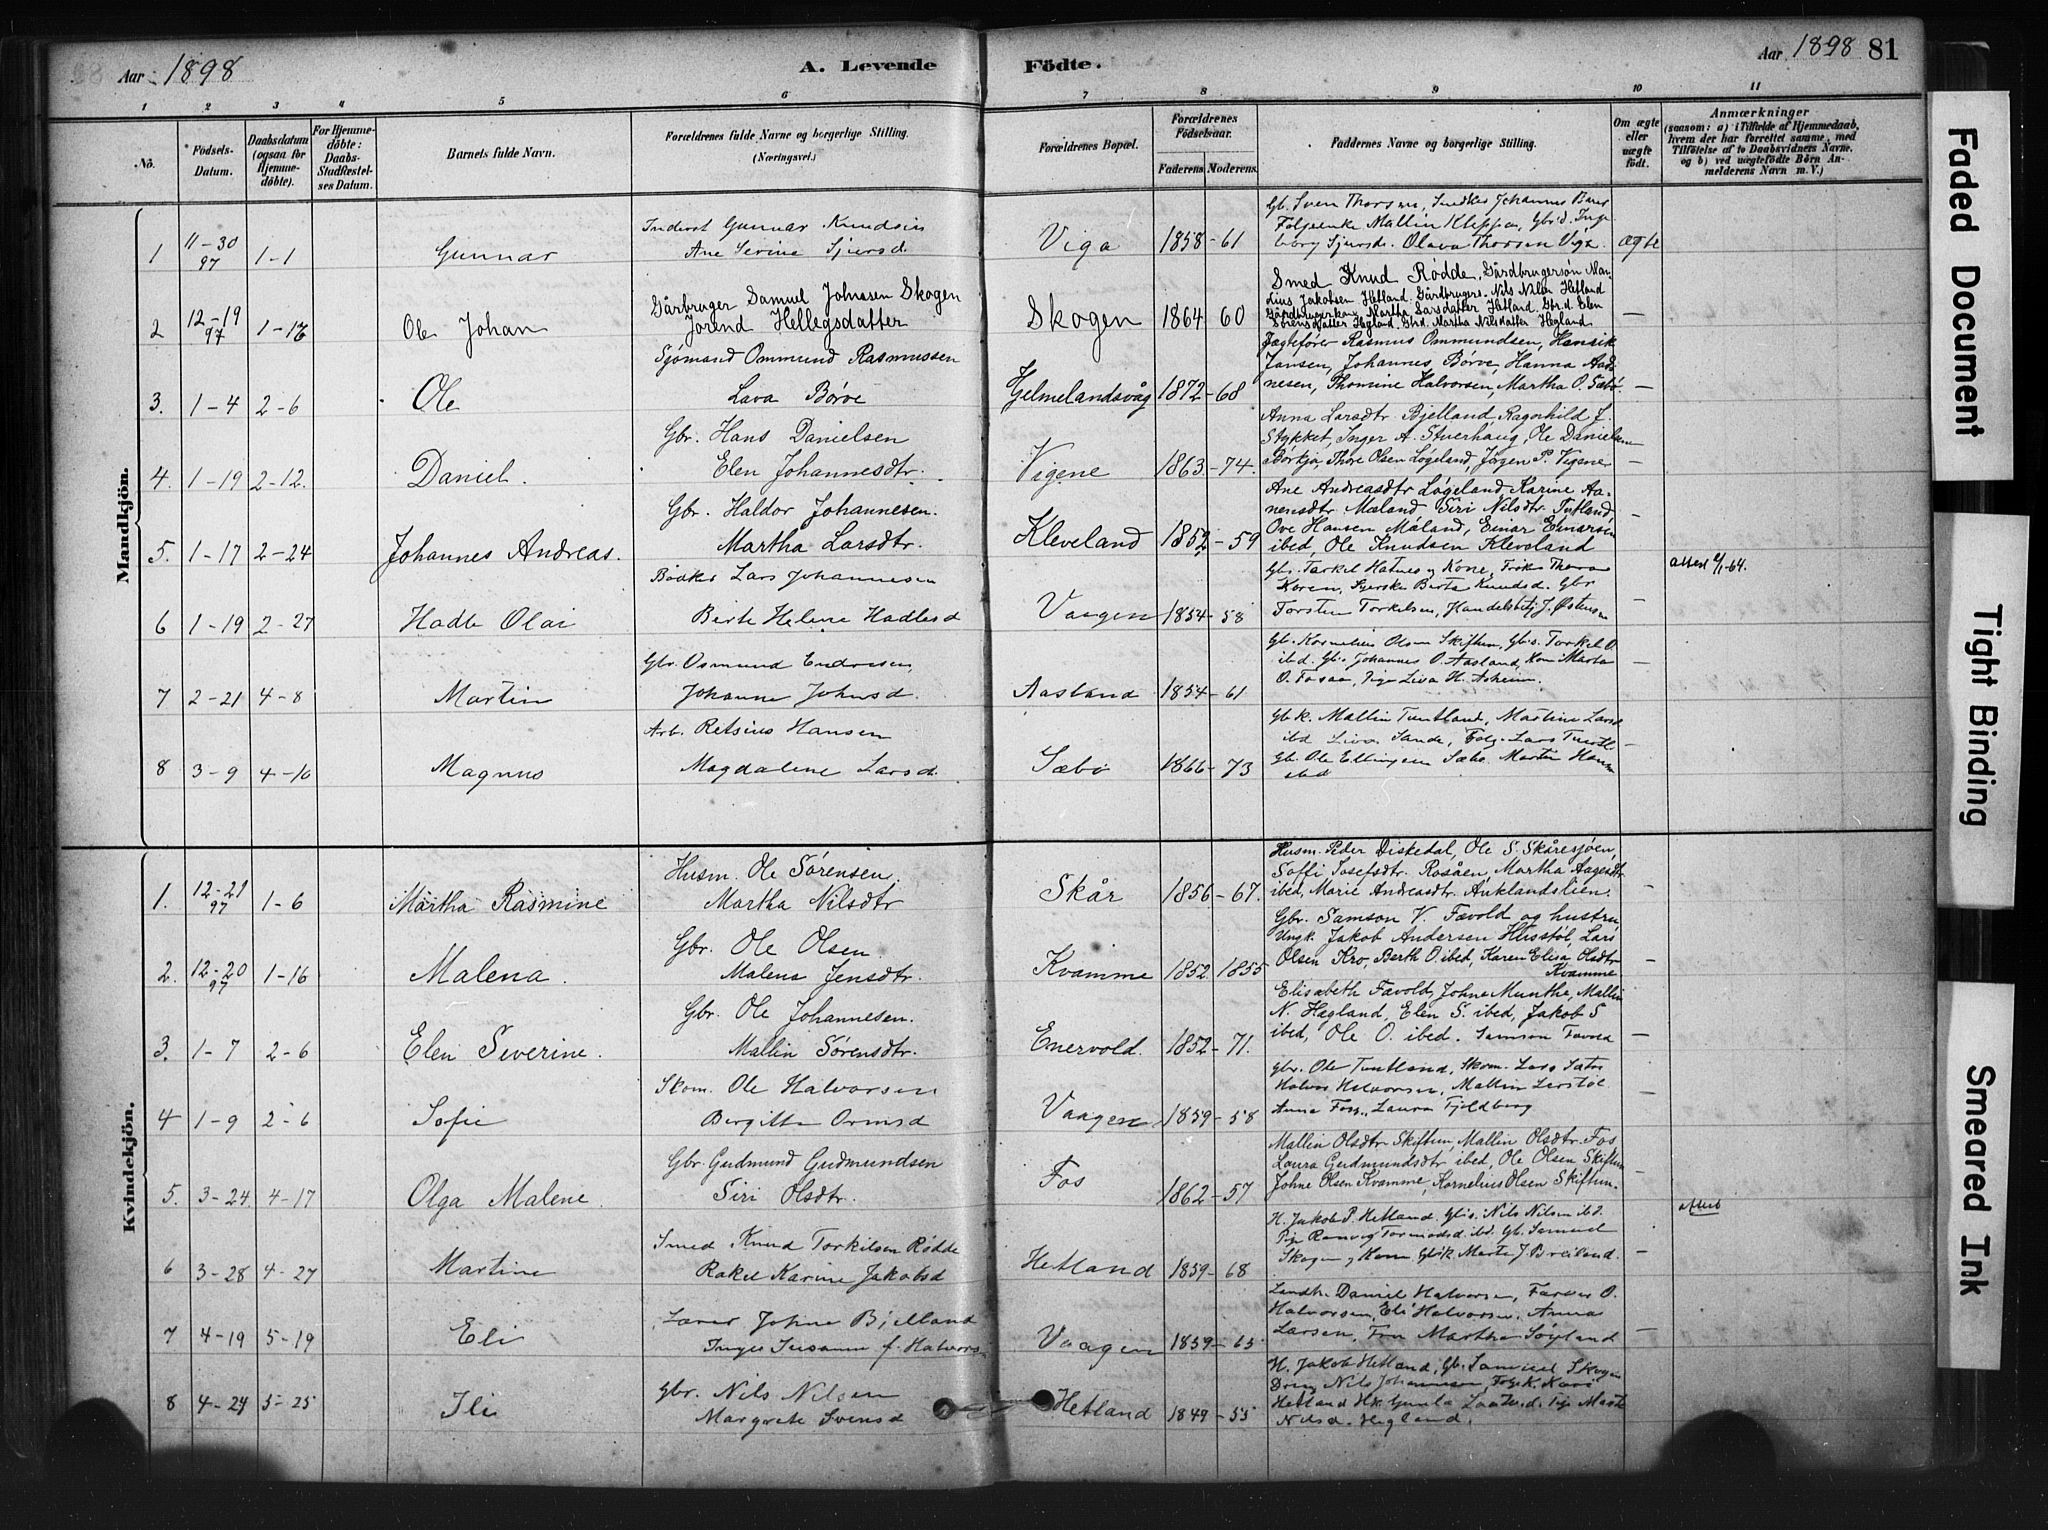 Aar 1898
A. Levende
Födte.
Aar 1898 81
1 2 3 4 5 6 7 8 9 10 11
No.
Födsels-
Datum.
Daabsdatum
(ogsaa for
Hjemme-
döbte).
For Hjemme-
döbte:
Daabs-
Stadfæstel-
ses Datum.
Barnets fulde Navn.
Forældrenes fulde Navne og borgerlige Stilling.
(Næringsvei.)
Forældrenes Bopæl.
Forældrenes
Födselsaar.
Faderens. Moderens.
Faddernes Navne og borgerlige Stilling.
Om ægte
eller
uægte
födt.
Anmærkninger
(saasom: a) i Tilfælde af Hjemmedaab,
hvem der har forrettet samme, med
Tilföielse af to Daabsvidners Navne,
og b) ved uægtefödte Börn An-
melderens Navn m. V.)
Mandkjön.
1 11-30 97 1-1 Gunnar
Inderst Gunnar Knudsen
Ane Serine Sjursd
Viga 1858-61
Gb. Sven Thorsen, Snedker Johannes
Følgeenke Mallin Kleppa, Gbrd. Inge
borg Sjursd. Olava Thorsen Viga. ægte
2 12-19 97 1-16 Ole Johan
Gårbruger Samuel Johnsen Skogen
Jorend Hellegsdatter
Skogen 1864 60
Smed Knud Rødde, Gårdbrugersøn Mar-
lius Jakobsen Hetland. Gårdbrugers. Nils Nilsen Hetland
Gårdbrugerkone Martha Larsdatter Hetland. Gbrd. Elen
Sørensdatter Hegland. Gbrd. Martha Nilsdatter Hegland —
3. 1-4 2-6 Ole
Sjömand Ommund Rasmussen
Lava Börve
Hjelmelandsvåg 1872-68
Jægtefører Rasmus Ommundsen, Henrik
Jansen, Johannes Börve, Hanna Aad-
nesen, Thomine Halvorsen, Martha O. Sæbö. —
4. 1-19 2-12. Daniel.
Gbr. Hans Danielsen
Elen Johannesdtr.
Vigene 1863-74.
Anna Larsdtr. Bjelland, Ragnhild J.
Stykket, Inger A. Stuerhaug, Ole Danielsen
Børkja, Thore Olsen Løgeland, Jørgen P. Vigene —
5. 1-17 2-24 Johannes Andreas.
Gbr. Haldor Johannesen.
Martha Larsdtr.
Kleveland 1852-59
Ane Andreasdtr Løgeland, Karine Aa-
nensdtr Mæland Siri Nilsdtr. Tutland
Ove Hansen Måland, Einar Einarsen
ibed, Ole Knudsen Kleveland —
attest 6/1-64.
6 1-19 2-27 Hadle Olai
Bödker Lars Johannesen
Birte Helene Hadlesd
Vaagen 1854-58
Gb. Tarkel Hatnes og Kone, Frøk. Thora
Koren, Syerske Berta Knudsd. Gbr
Torsten Torkelsen, Handelsbetj J. Østensen —
7 2-21 4-8 Martin
Gbr. Osmund Endresen
Johanne Johnsd.
Aasland 1854-61
Gb. Kornelius Olsen Skiftun, Gb.s. Torkel O.
ibd. Gb.s Johannes O. Aasland, Kone Marta
O. Fosaa, Pige Lisa H. Asheim. —
8 3-9 4-10 Magnus
Arb. Retsius Hansen
Magdalene Larsd.
Sæbö 1866-73
Gb.k. Mallin Tuntland, Martine Larsd
ibd Lisa Sande, Følg. Lars Tuntl
Gb. Ole Ellingsen Sæbö. Martin Hansen
ibd —
Kvindekjön.
1. 12-21 97 1-6 Martha Rasmine
Husm. Ole Sörensen.
Martha Nilsdtr
Skår 1856-67.
Husm. Peder Diskedal, Ole S. Skåresjöen,
Soffi Josefsdtr. Rosåen, Martha Aagesdtr
ibed, Marie Andreasdtr. Auklandslien. —
2. 12-20 97 1-16 Malena.
Gbr. Ole Olsen.
Malena Jensdtr.
Kvamme 1852-1855
Gbr. Samson V. Fævold og hustru
Ungk. Jakob Andersen Husstöl, Lars
Olsen Kro, Berth O ibed, Karen Elisa Olsdtr
Kvamme —
3. 1-7 2-6 Elen Severine.
Gbr. Ole Johannesen.
Mallin Sörensdtr.
Enervold. 1852-71.
Elisabeth Fævold, Johne Munthe, Mallin
N. Hægland, Elen S. ibed, Jakob S
ibed, Ole O. ibed. Samson —
4 1-9 2-6 Sofie
Skom. Ole Halvorsen
Bergitte Ormsd
Vaagen 1859-58
Gbr. Ole Tuntland, Skom. Lars
Halvor Halvorsen, Mallin
Anna Fos, Laura Fjeldberg —
5. 3-24 4-17 Olga Malene
Gbr. Gudmund Gudmundsen
Siri Olsdtr.
Fos 1862-57
Mallin Olsdtr Skiftun, Mallin Olsdtr. Fos
Laura Gudmundsdtr ibed, Ole Olsen Skiftun
Johne Olsen Kvamme, Kornelius Olsen Skiftun. —
attest
6 3-28 4-27 Martine
Smed Knud Torkilsen Rödde
Rakel Karine Jakobsd
Hetland 1859-68
H. Jakob P. Hetland. Gb.s. Nils Nilsen ibd.
Pige Ranveg Tormodsd. ibd. Gb. Samuel
Skogen og Kone Gb.k. Marte J. Breiland. —
7 4-19 5-19 Eli
Lærer Johne Bjelland
Inger Susanne f. Halvorsen
Vaagen 1859-65
Landh. Daniel Halvorsen, Farver O.
Halvorsen, Eli Halvorsen, Anna
Larsen, Fru Martha Søyland —
8 4-24 5-25 Ili
Gbr. Nils Nilsen
Margrete Svensd
Hetland 1849-55
H. Jakob Hetland, Gb. Samuel Skogen
Dreng Nils Johannsen, Følgek. Kari
Hetland Hk. Gunla Laatved. Pige Marte
Nilsd. Hegland.
Faded Document
Tight Binding
Smeared Ink